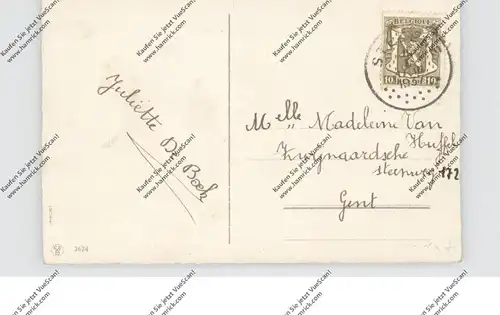 Juliette De Boek
BELGIE
10 10
Melle Madeleine Van
Huffel
Zwijnaardsche
steenweg 172
Gent
3626
Kaufen Sie jetzt VueScan!
www.hamrick.com